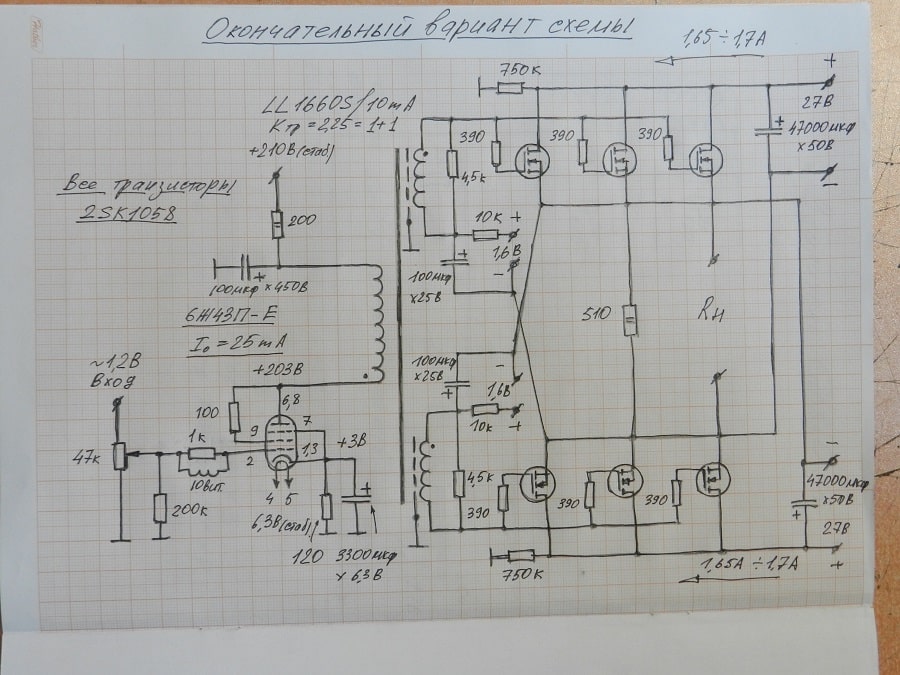 Окончательный вариант схемы
1,65 ÷ 1,7А
+
27В
47000мкф
х50В
−
750к
LL1660S/10mA
Kтр = 2,25 = 1+1
+210В (стаб)
Все транзисторы
2SK1058
200
100мкф х 450В
6Ж43П-Е
I₀ = 25mA
+203В
~1,2В
Вход
47к
200к
1к
10вит.
100
6,8
7
9
2
1,3
4 5
+3В
6,3В (стаб)
120
3300мкф
х 6,3В
390
390
390
4,5к
10к
+
1,6В
−
100мкф
х25В
510
Rн
100мкф
х25В
−
1,6В
+
10к
4,5к
390
390
390
750к
−
47000мкф
х50В
27В
+
1,65А ÷ 1,7А